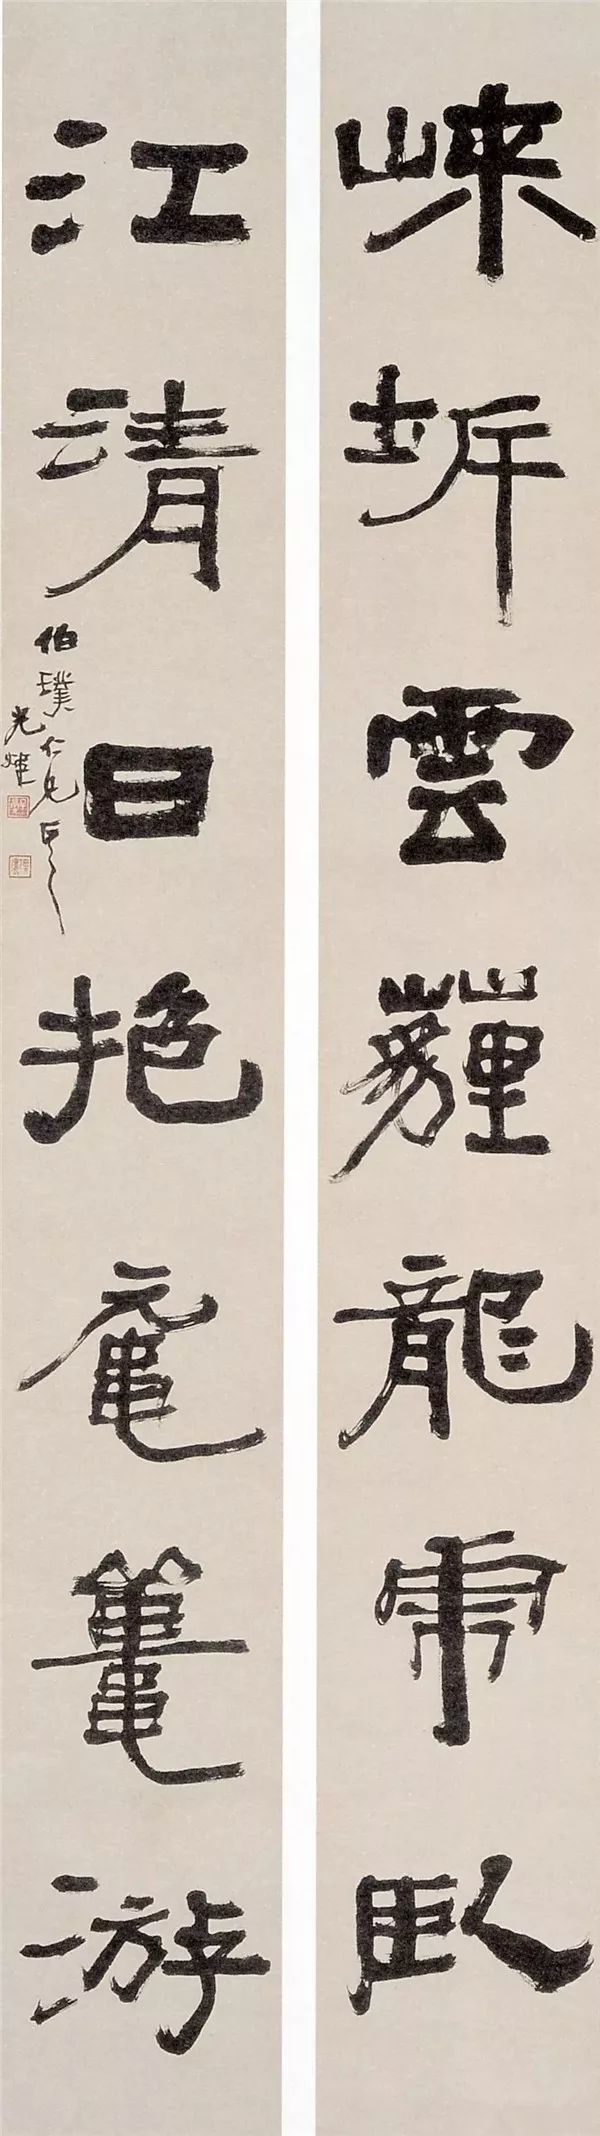 峽坼雲薶龍虎臥
江清日抱黿鼉游
伯璞仁兄正之
光煒